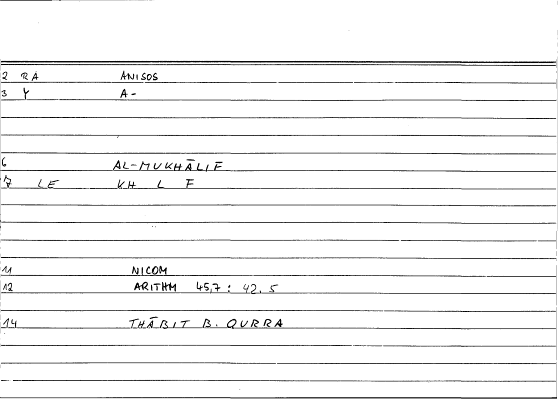 2 RA ANISOS
3 Y A-
6 AL-MUKHĀLIF
7 LE KH L F
11 NICOM
12 ARITHM 45,7 : 42.5
14 THĀBIT B. QURRA